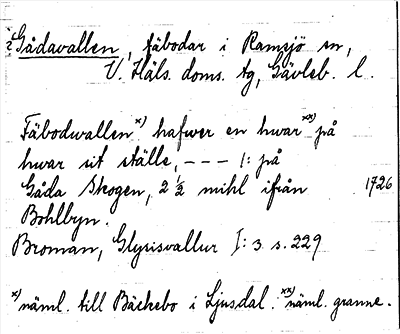 ? Gådavallen, fäbodar i Ramsjö sn,
V. Häls. doms. tg, Gävleb. l.
Fäbodwallen x) hafwer en hwar xx) på
hwar sit ställe, – – – /: på
Gåda Skogen, 2 1/2 mihl ifrån 1726
Bohlbyn.
Broman, Glysisvallur I: 3 s. 229
x) näml. till Bäckebo i Ljusdal. xx) näml. granne.